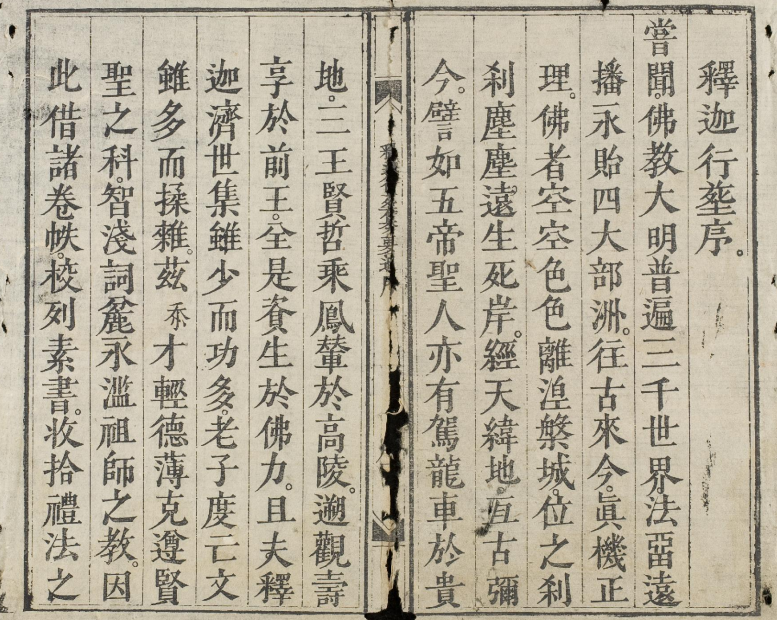 釋迦行塟序。
嘗聞。佛教大明普遍三千世界。法畱遠
播永貽四大部洲。往古來今。眞機正
理。佛者空空色色離湼槃城。位之刹
刹塵塵。遠生死岸。經天緯地。亘古彌
今。譬如五帝聖人亦有駕龍車於貴
地。三王賢哲乘鳳輦於高陵。遡觀壽
享於前王。全是資生於佛力。且夫釋
迦濟世集雖少而功多。老子度亡文
雖多而揉雜。茲忝才輕德薄克遵賢
聖之科。智淺詞麄永濫祖師之教。因
此借諸卷帙。校列素書。收拾禮法之